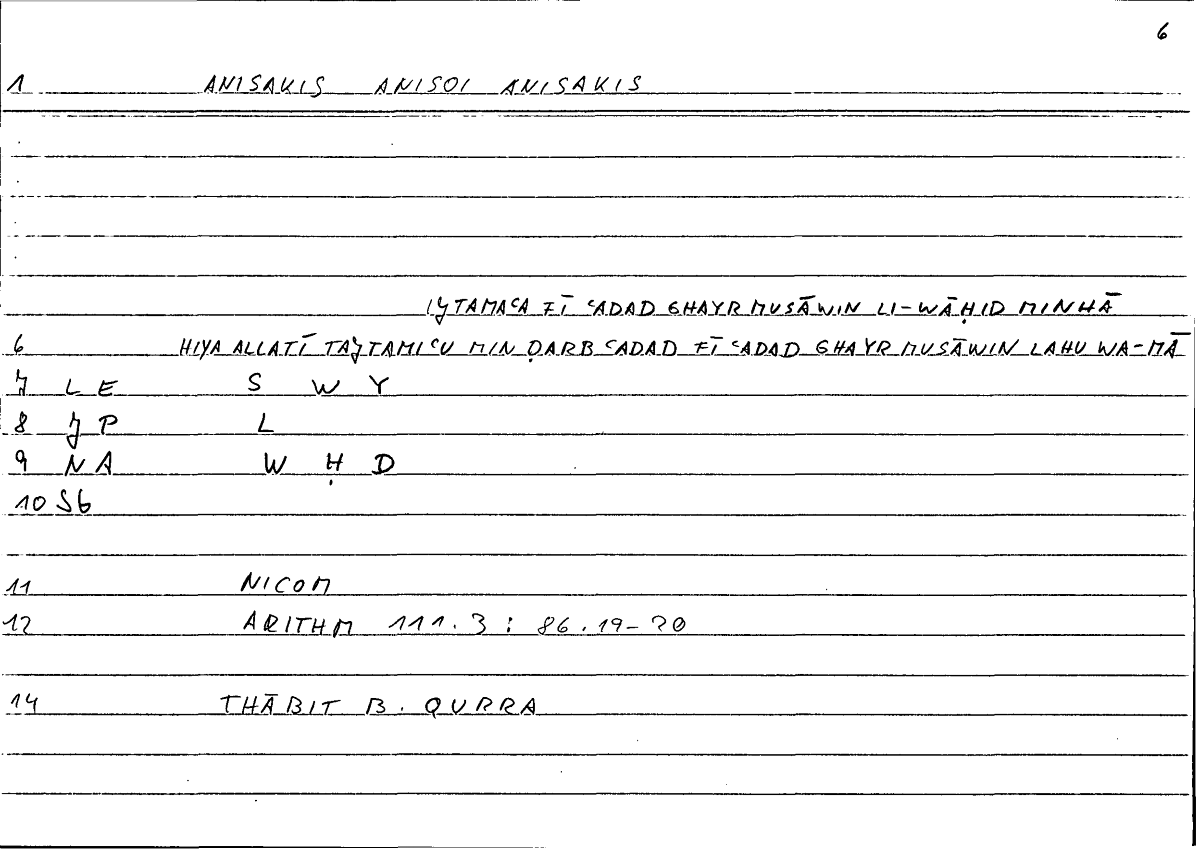 6
1 ANISAKIS ANISOI ANISAKIS
IJTAMAʿA FĪ ʿADAD GHAYR MUSĀWIN LI-WĀḤID MINHĀ
6 HIYA ALLATĪ TAJTAMIʿU MIN ḌARB ʿADAD FĪ ʿADAD GHAYR MUSĀWIN LAHU WA-MĀ
7 LE S W Y
8 JP L
9 NA W Ḥ D
10 SG
11 NICOM
12 ARITHM 111.3 : 86.19-20
14 THĀBIT B. QURRA